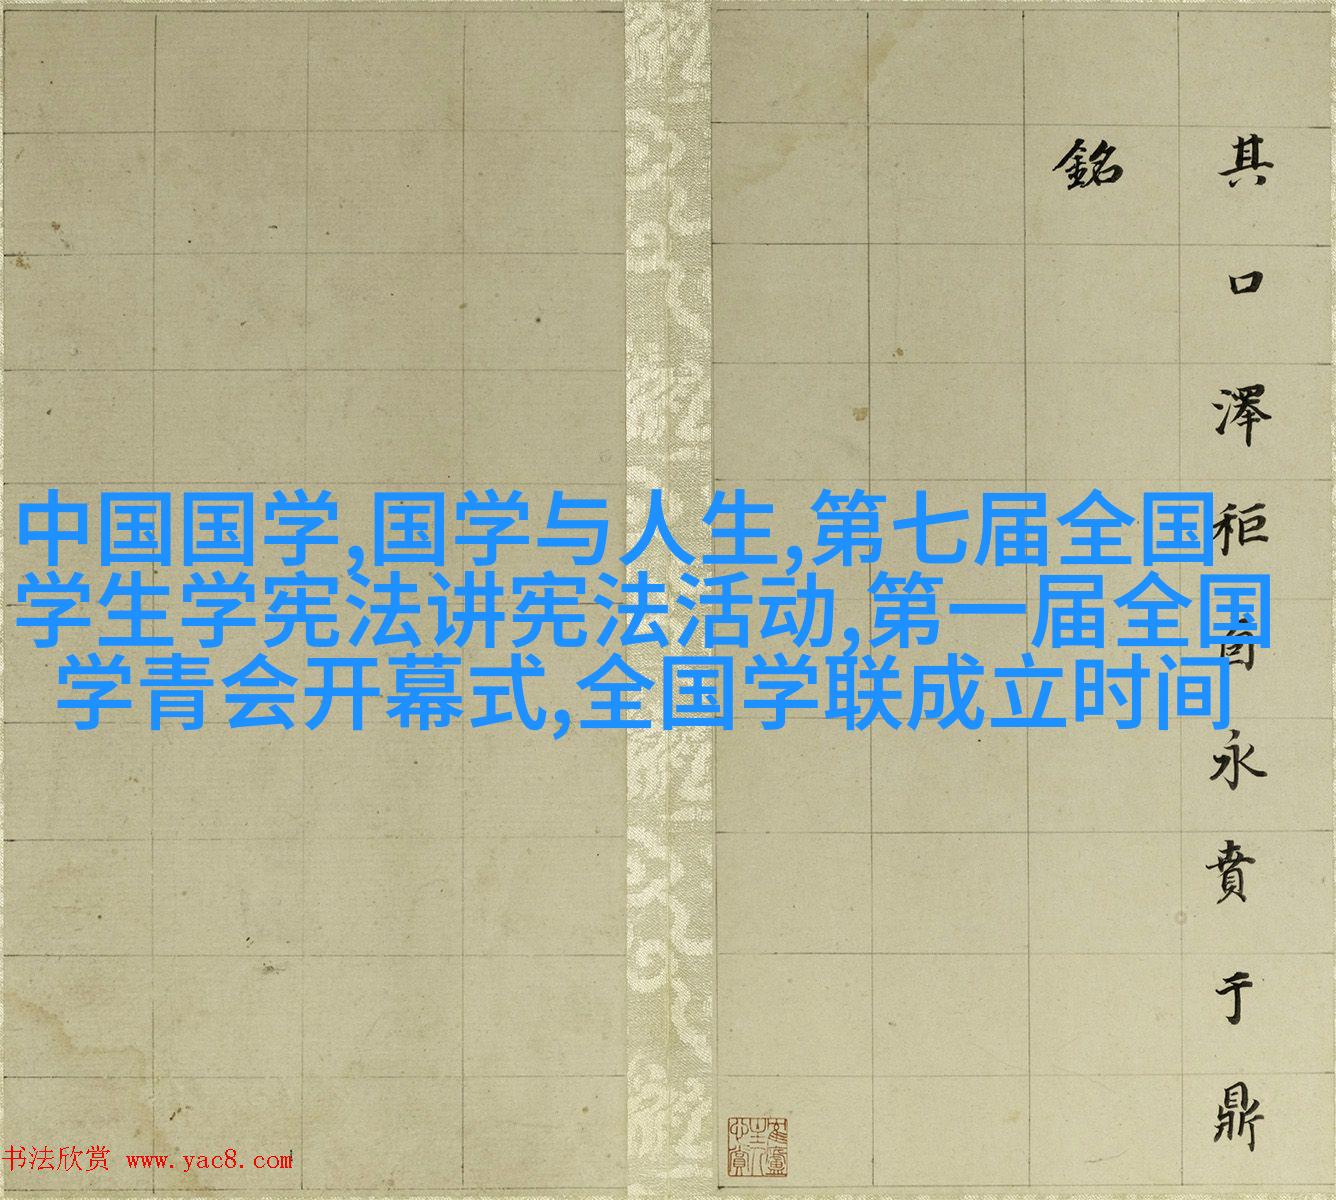 中国国学,国学与人生,第七届全国
学生学宪法讲宪法活动,第一届全国
学青会开幕式,全国学联成立时间
其口澤秬卣永賁于鼎
銘
书法欣赏 www.yac8.com